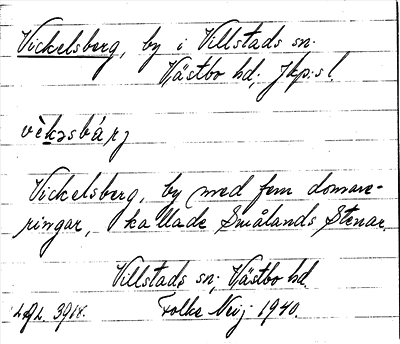 Vickelsberg, by i Villstads sn.
Västbo hd; Jkp:s l.
vèkɔsbárj
Vickelsberg, by med fem domare-
ringar, kallade Smålands Stenar.
Villstads sn; Västbo hd.
3918. Folke Neij 1940.